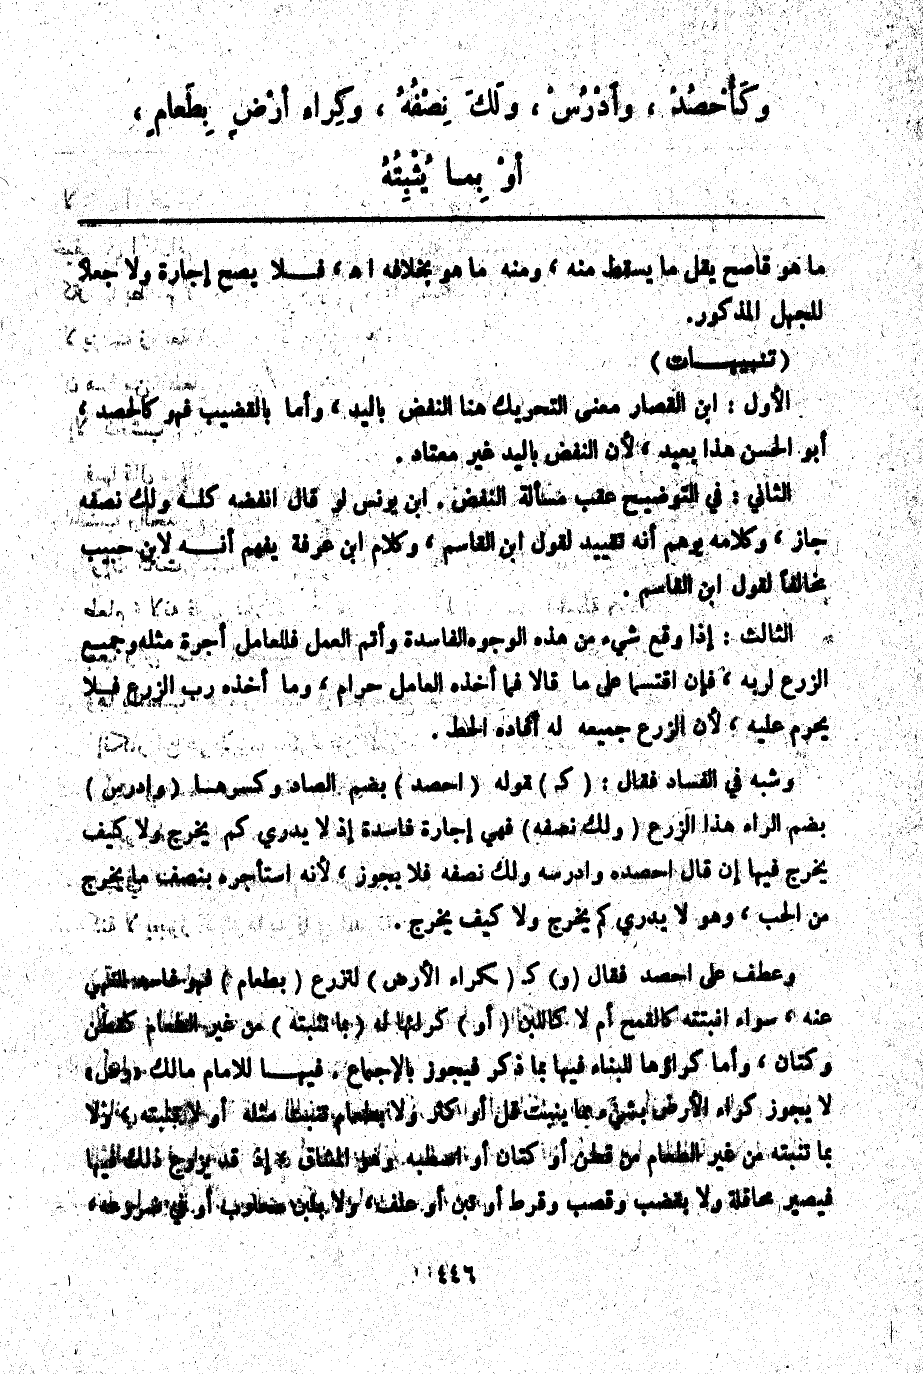 وَكَأُحْصُدْ ، وأدْرُسْ ، ولَكَ نِصْفُهُ ، وكِرَاءِ أرْضٍ بِطَعامٍ ،
أوْ بِمـا يُنْبِتُهُ
ما هو قاصح يقل ما يسقط منه ، ومنه ما هو بخلافه ا ه ، فـلا يصح إجارة ولا جعلا
للجهل المذكور.
( تنبيهـات )
الأول : ابن القصار معنى التحريك هنا النفض باليد ، وأما بالقضيب فهو كالحصد ،
أبو الحسن هذا بعيد ، لأن النفض باليد غير معتاد .
الثاني : في التوضيح عقب مسألة النفض . ابن يونس لو قال انفضه كلـه ولك نصفه
جاز ، وكلامه يوهم أنه تقييد لقول ابن القاسم ، وكلام ابن عرفة يفهم أنـه لابن حبيب
مخالفاً لقول ابن القاسم .
الثالث : إذا وقع شيء من هذه الوجوه الفاسدة وأتم العمل فللعامل أجرة مثله وجميع
الزرع لربه ، فإن اقتسما على ما قالا فما أخذه العامل حرام ، وما أخذه رب الزرع فـلا
يحرم عليه ، لأن الزرع جميعه له أفاده الحط .
وشبه في الفساد فقال : ( كـ ) قوله ( احصد ) بضم الصاد وكسرهـا ( وادرس )
بضم الراء هذا الزرع ( ولك نصفه ) فهي إجارة فاسدة إذ لا يدري كم يخرج ولا كيف
يخرج فيها إن قال احصده وادرسه ولك نصفه فلا يجوز ، لأنه استأجره بنصف ما يخرج
من الحب ، وهو لا يدري كم يخرج ولا كيف يخرج .
وعطف على احصد فقال (و) كـ ( كراء الأرض ) لتزرع ( بطعام ) فهو فاسد للنهي
عنه ، سواء انبتته كالقمح أم لا كاللبن ( أو ) كرائها له ( بما تنبته ) من غير الطعام كقطن
وكتان ، وأما كراؤها للبناء فيها بما ذكر فيجوز بالإجماع . فيهـا للامام مالك
لا يجوز كراء الأرض بشيء مما ينبت قل أو كثر ولا بطعام تنبت مثله أو لا تنبته ، ولا
بما تنبته من غير الطعام من قطن أو كتان أو اصطبه وهو المشاق ، إذ قد يزرع ذلك فيها
فيصير محاقلة ولا بقضب وقصب وقرط أو تبن أو علف ، ولا بلبن
٤٤٦